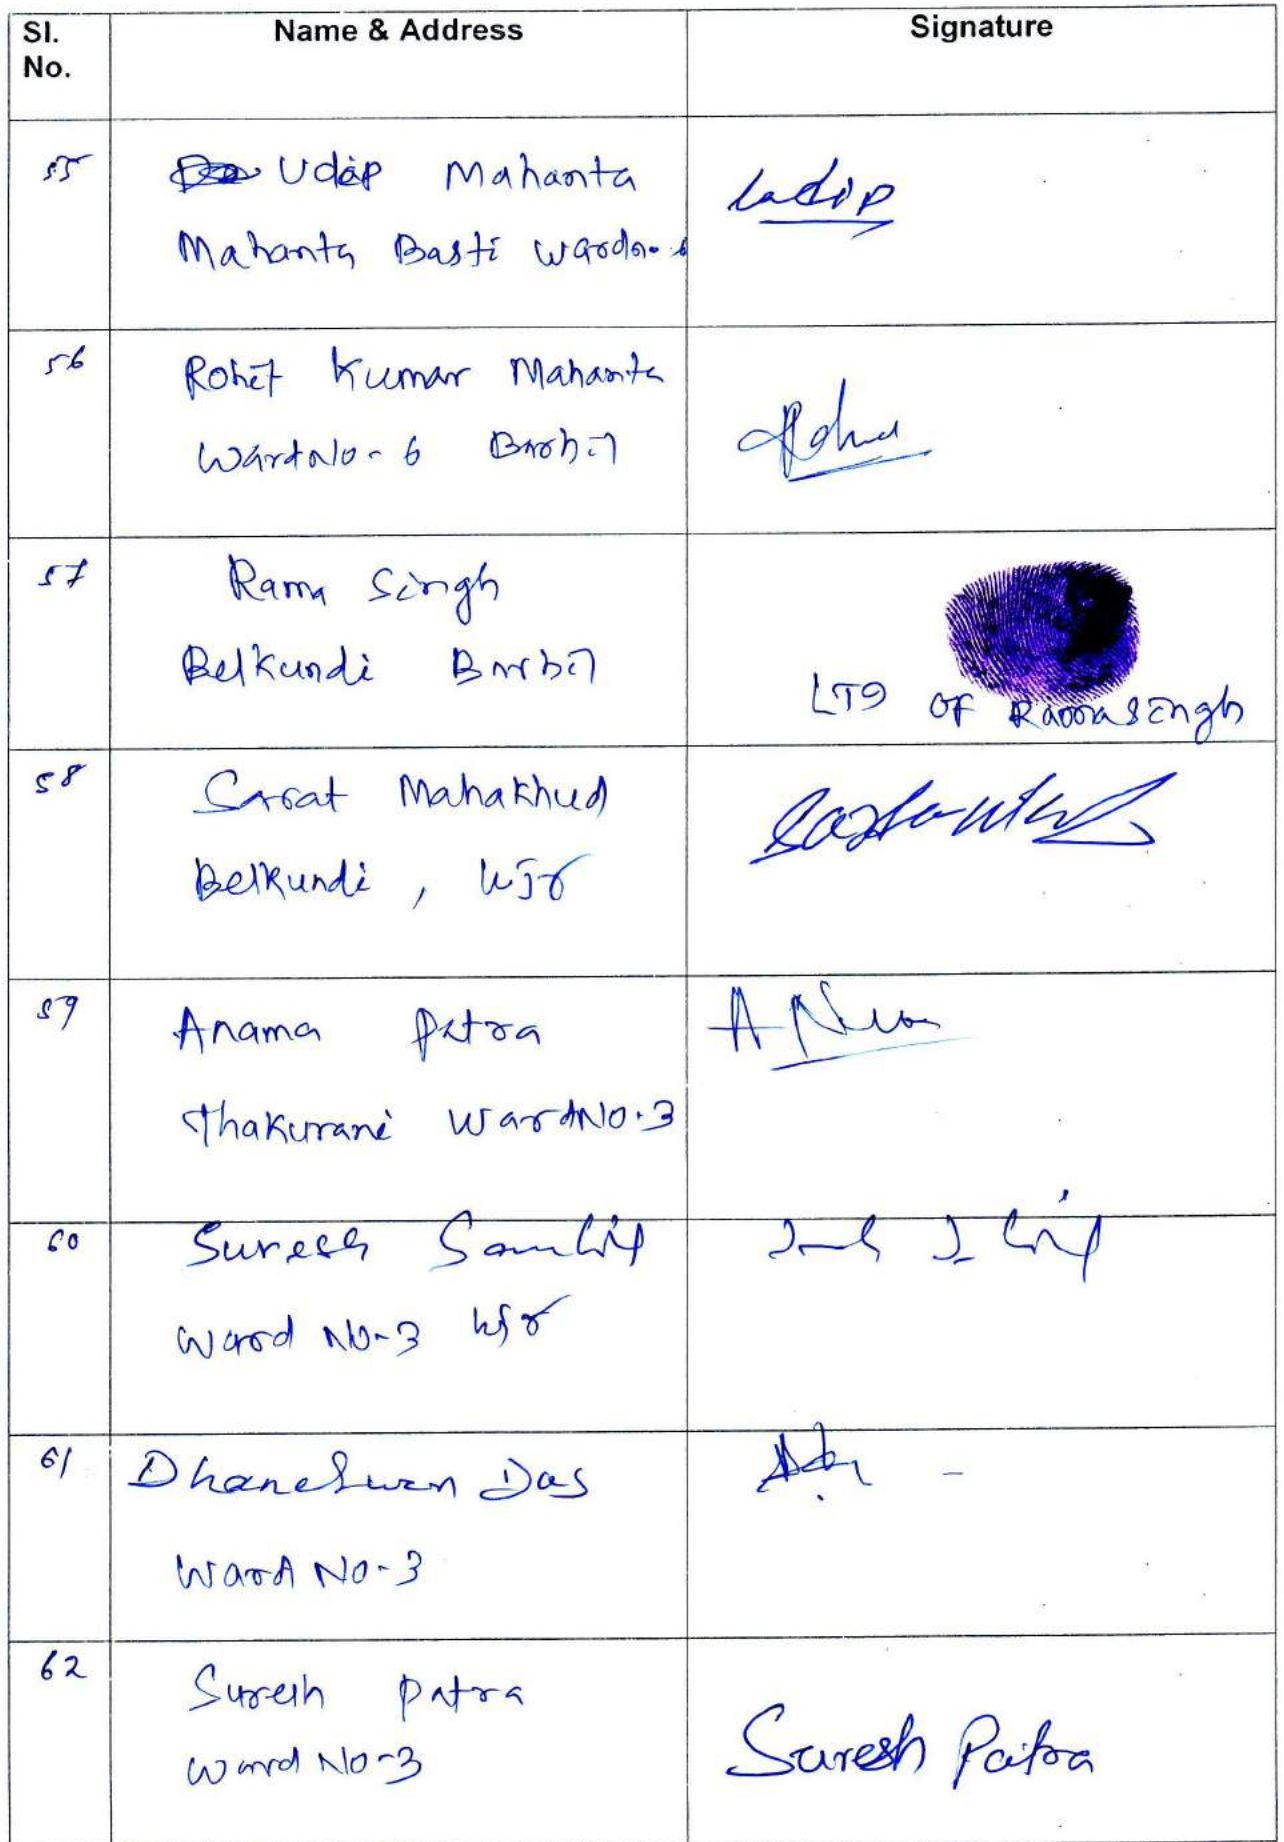 Sl. No. Name & Address Signature
55 Udip Mahanta Udip
Mahanta Basti Wardno-6
56 Rohit Kumar Mahanta
WardNo-6 Barbil Rohit
57 Rama Singh
Belkundi Barbil LTI OF Rama Singh
58 Sarat Mahakhud
Belkundi, KJr
59 Anama Patra
Thakurani WardNo.3
60 Suresh
Ward No-3 KJr
61 Dhaneswar Das
Ward No-3
62 Suresh Patra
Ward No-3 Suresh Patra